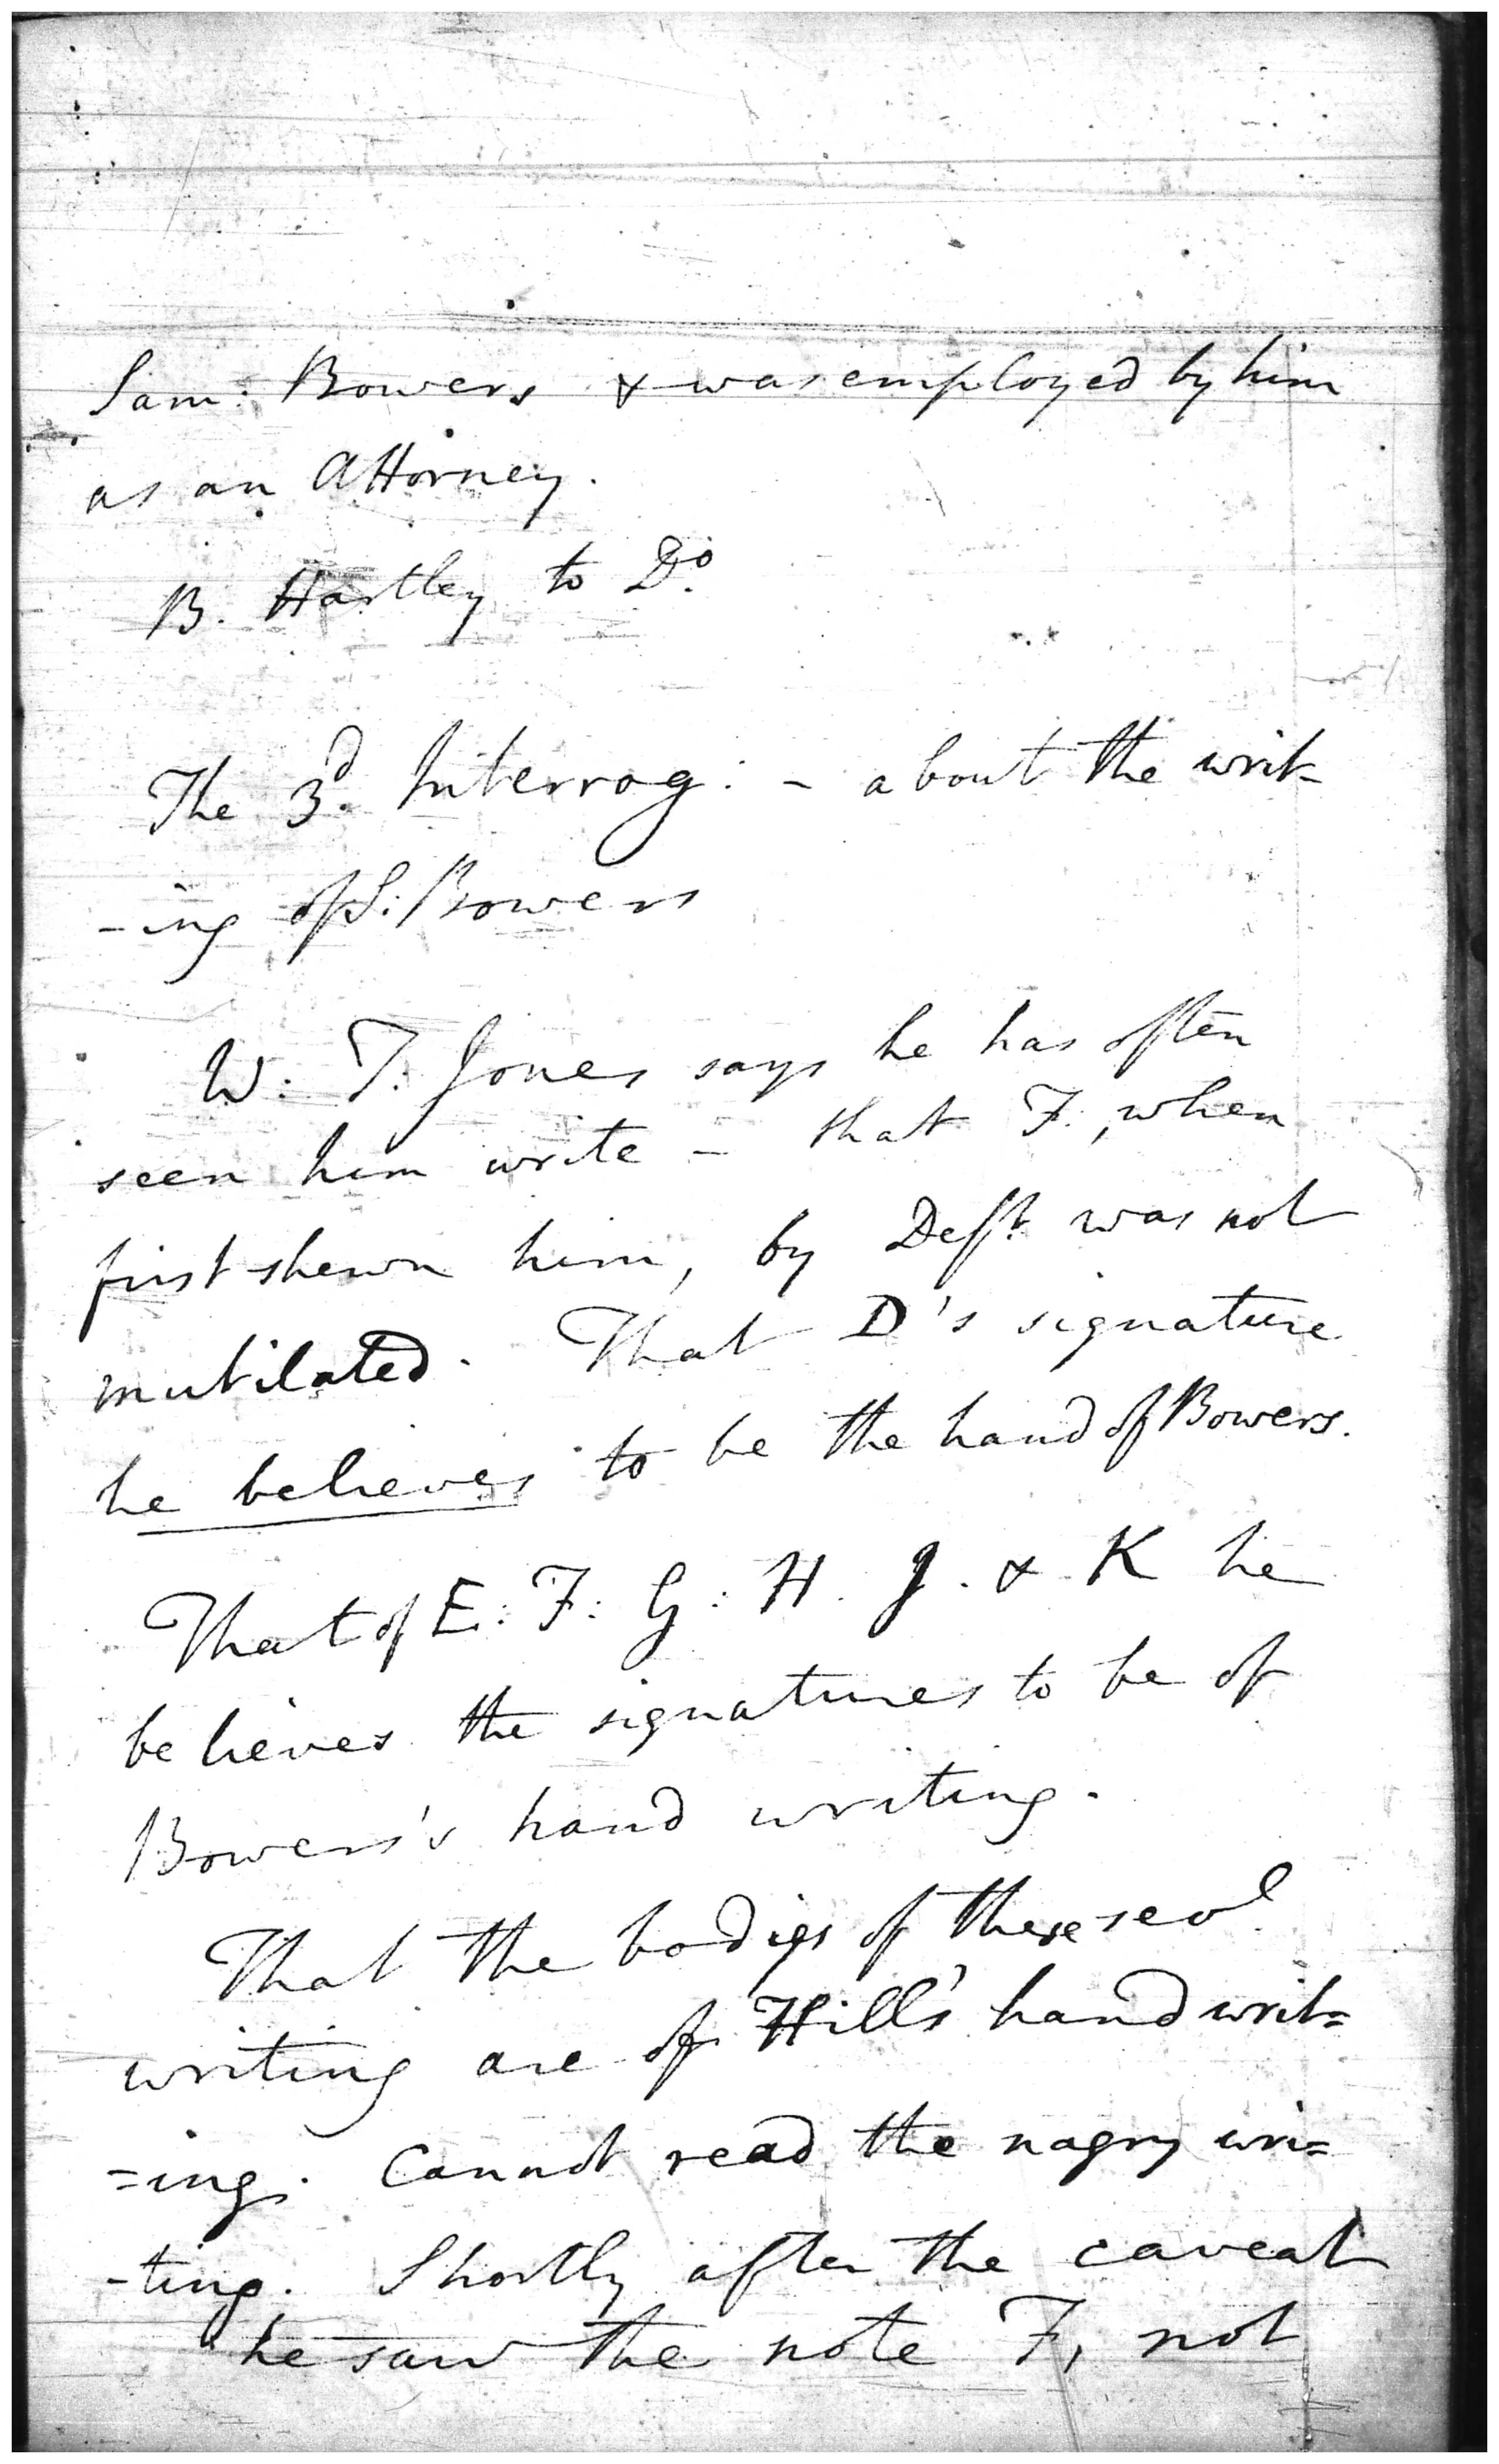 Sam: Bowers & was employed by him
as an Attorney.
B. Hartley to Do.
The 3d. Interrog: - about the writ-
-ing of S: Bowers
W: T: Jones says he has often
seen him write - that F:, when
first shewn him, by Deft. was not
mutilated. That D's signature
he believes to be the hand of Bowers.
That of E: F: G: H. J. & K he
believes the signatures to be of
Bowers's hand writing.
That the bodies of these sevl.
writing are of Hill's hand writ=
=ing. Cannot read the nagry wri=
-ting. Shortly after the caveat
he saw the note F, not